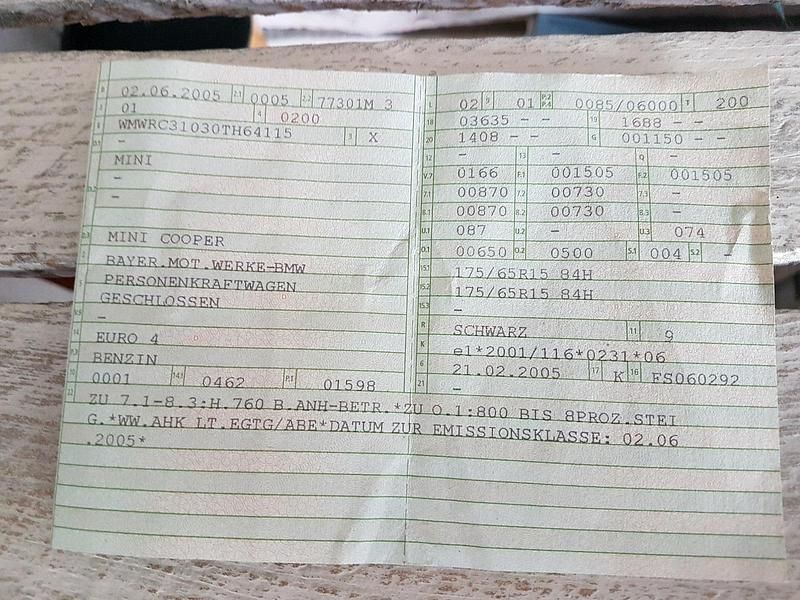 B 02.06.2005 2.1 0005 2.2 77301M 3
J 01 4 0200
E WMWRC31030TH64115 3 X
D.1 -
MINI
D.2 -
-
D.3 MINI COOPER
BAYER.MOT.WERKE-BMW
5 PERSONENKRAFTWAGEN
GESCHLOSSEN
V.9 -
14 EURO 4
P.3 BENZIN
10 0001 14.1 0462 P.1 01598
L 02 9 01 P.2 P.4 0085/06000 T 200
18 03635 - - 19 1688 - -
20 1408 - - G 001150 - -
12 - 13 - Q -
V.7 0166 F.1 001505 F.2 001505
7.1 00870 7.2 00730 7.3 -
8.1 00870 8.2 00730 8.3 -
U.1 087 U.2 - U.3 074
O.1 00650 O.2 0500 S.1 004 S.2 -
15.1 175/65R15 84H
15.2 175/65R15 84H
15.3 -
R SCHWARZ 11 9
K e1*2001/116*0231*06
6 21.02.2005 17 K 16 FS060292
21 -
22 ZU 7.1-8.3:H.760 B.ANH-BETR.*ZU O.1:800 BIS 8PROZ.STEI
G.*WW.AHK LT.EGTG/ABE*DATUM ZUR EMISSIONSKLASSE: 02.06
.2005*